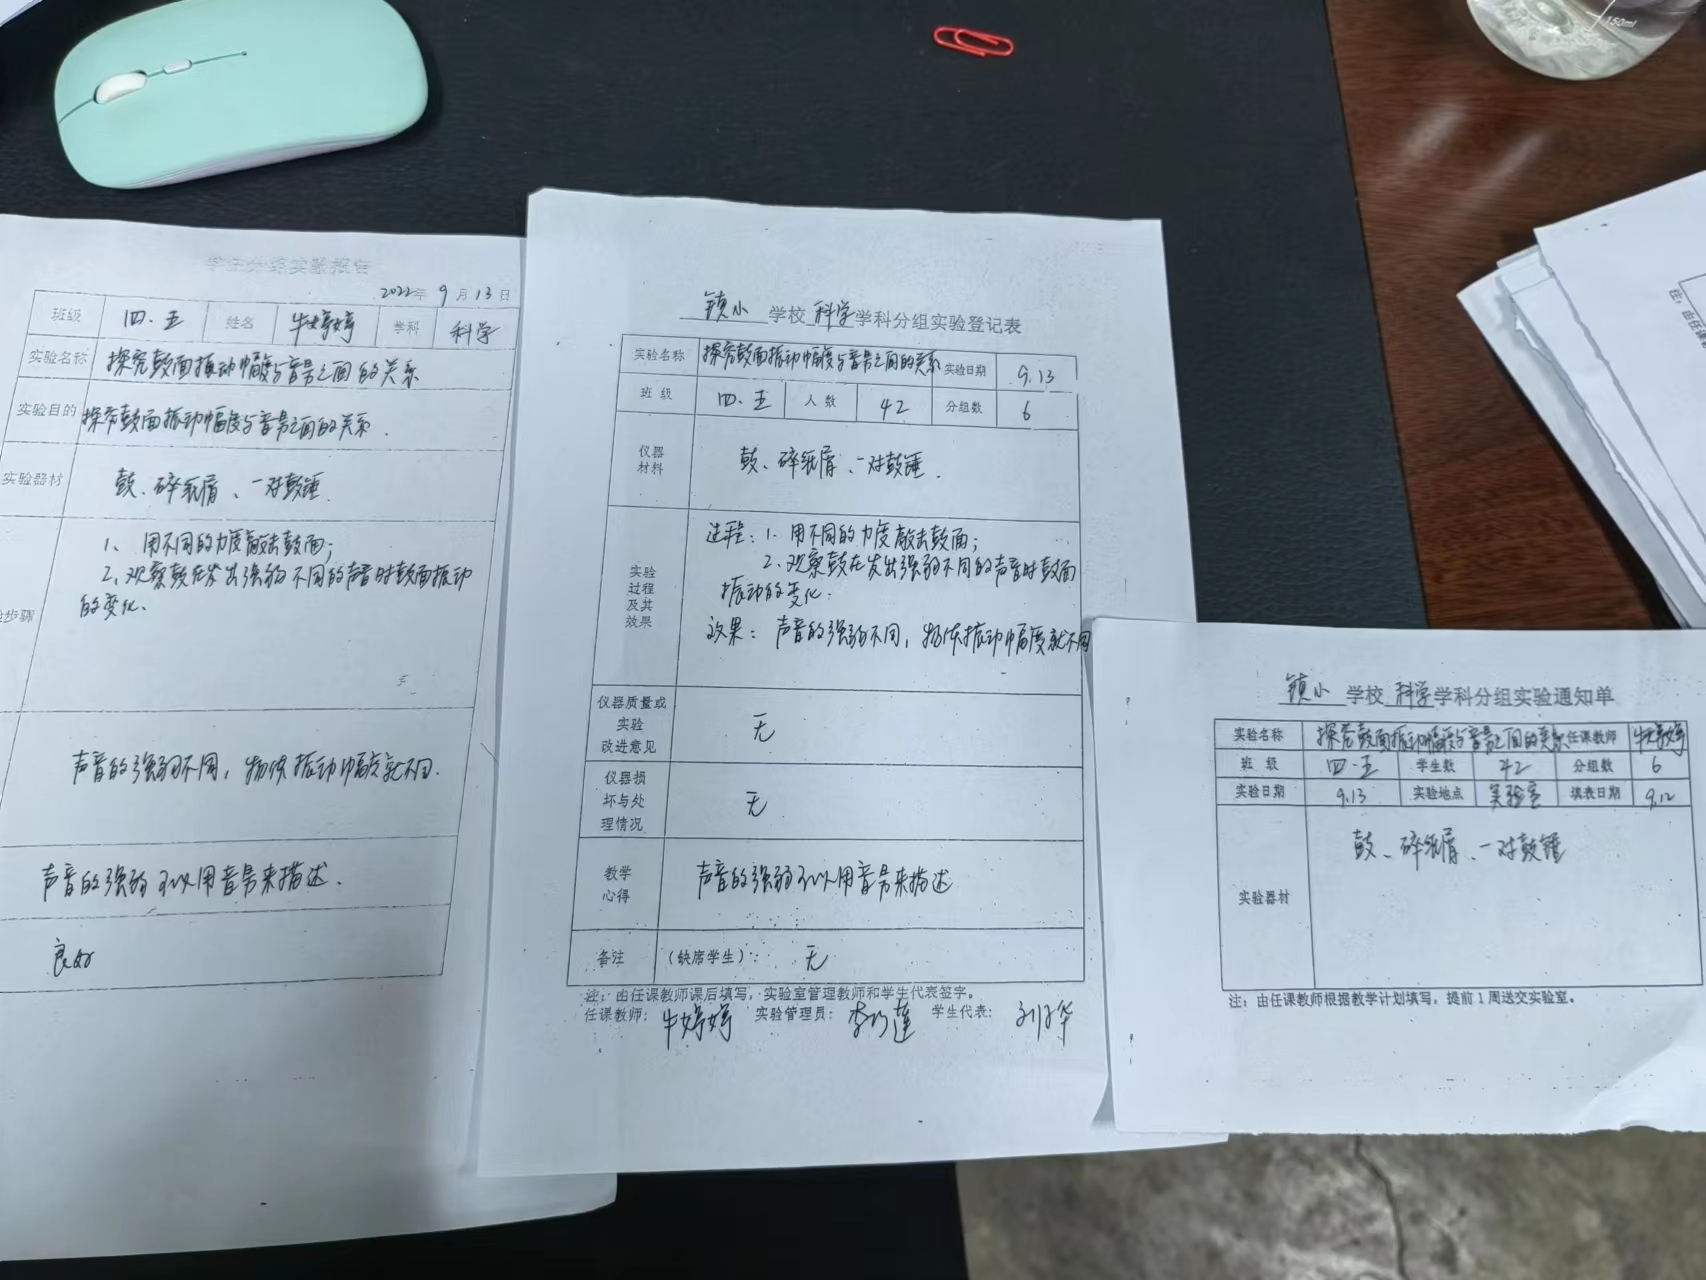 学生分组实验报告
2022年 9月13日
班级 四.五 姓名 牛婷婷 学科 科学
实验名称 探究鼓面振动幅度与音量之间的关系
实验目的 探究鼓面振动幅度与音量之间的关系.
实验器材 鼓、碎纸屑、一对鼓锤.
步骤
1、用不同的力度敲击鼓面;
2、观察鼓在发出强弱不同的声音时鼓面振动
的变化.
声音的强弱不同, 物体振动幅度就不同.
声音的强弱可以用音量来描述.
良好
镇小 学校 科学 学科分组实验登记表
实验名称 探究鼓面振动幅度与音量之间的关系 实验日期 9.13
班级 四.五 人数 42 分组数 6
仪器
材料
鼓、碎纸屑、一对鼓锤.
实验
过程
及其
效果
过程: 1. 用不同的力度敲击鼓面;
2.观察鼓在发出强弱不同的声音时鼓面
振动的变化.
效果: 声音的强弱不同, 物体振动幅度就不同
仪器质量或
实验
改进意见
无
仪器损
坏与处
理情况
无
教学
心得
声音的强弱可以用音量来描述
备注 (缺席学生): 无
注: 由任课教师课后填写, 实验室管理教师和学生代表签字。
任课教师: 牛婷婷 实验管理员: 学生代表:
镇小 学校 科学 学科分组实验通知单
实验名称 探究鼓面振动幅度与音量之间的关系 任课教师 牛婷婷
班级 四.五 学生数 42 分组数 6
实验日期 9.13 实验地点 实验室 填表日期 9.12
实验器材
鼓、碎纸屑、一对鼓锤
注: 由任课教师根据教学计划填写, 提前1周送交实验室。
150ml